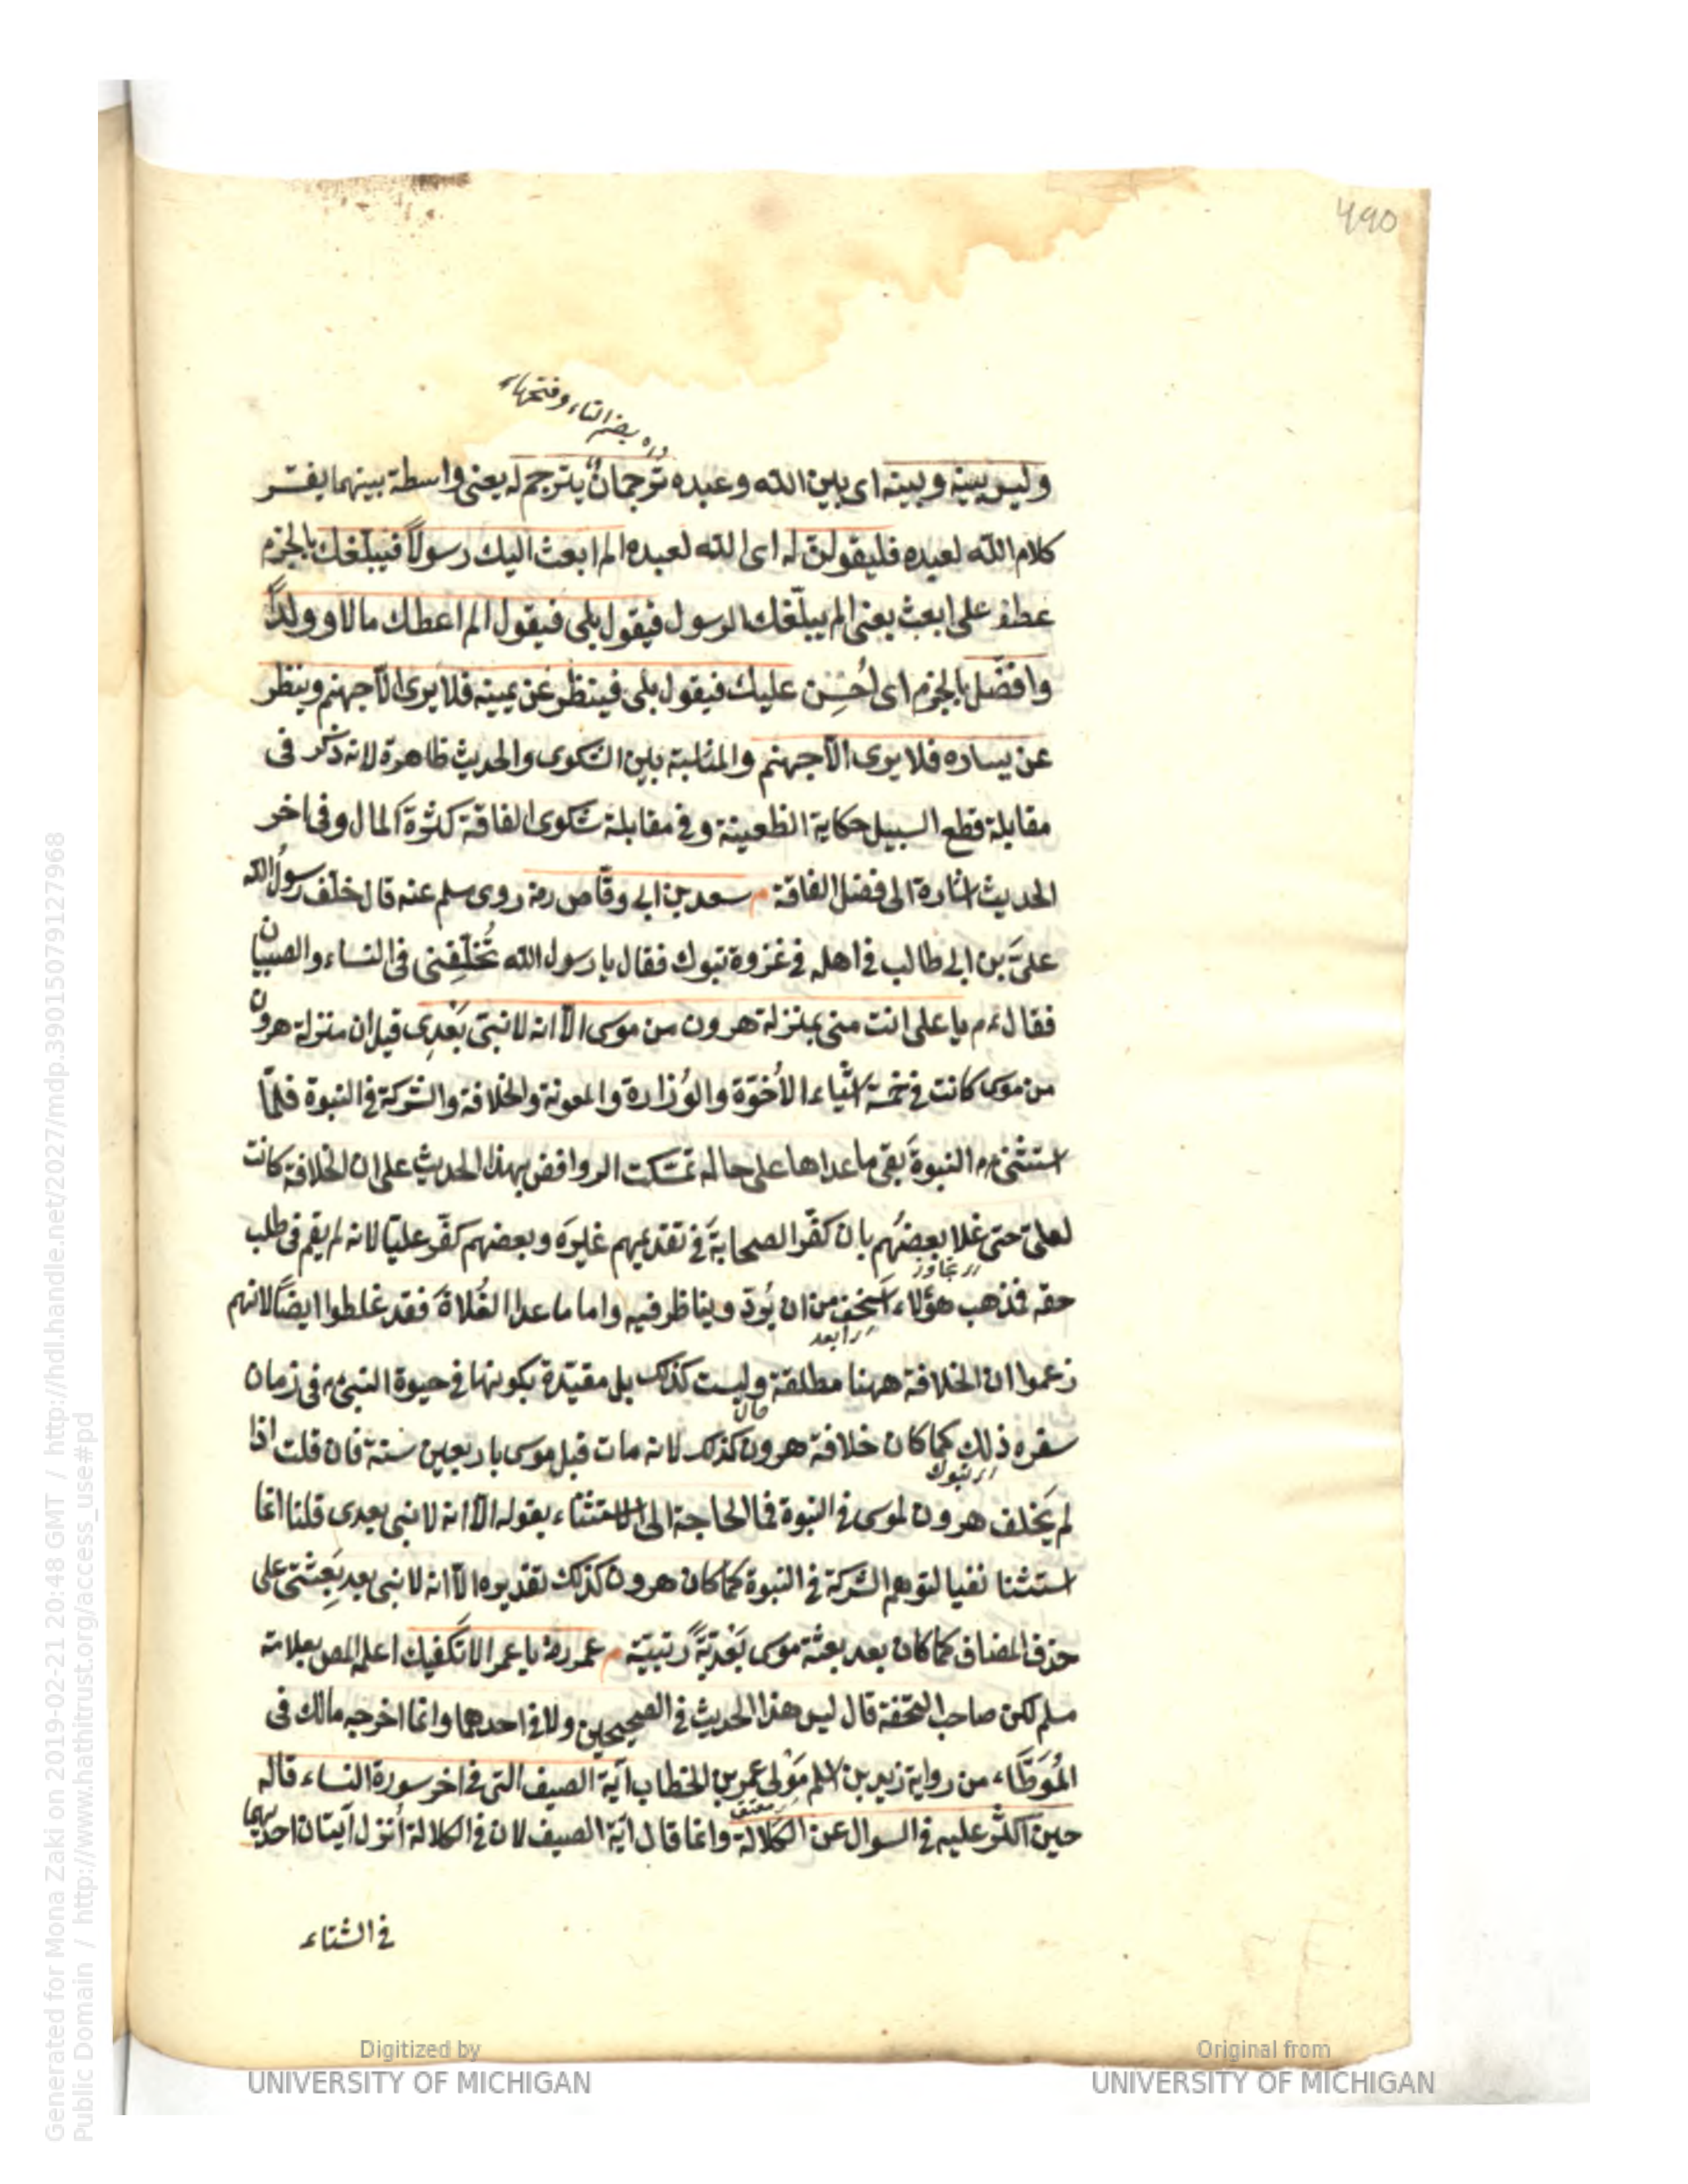 490
بضم التاء وفتحها
وليس بينه وبينه اى بين الله وعبده تُرجمانٌ يترجم له يعنى واسطة بينهما يفسر
كلام الله لعبده فليقولن له اى الله لعبده الم ابعث اليك رسولاً فيبلّغك بالجزم
عطف على ابعث يعنى الم يبلّغك الرسول فيقول بلى فيقول الم اعطك مالا وولداً
وافضّل بالجزم اى اُحسِن عليك فيقول بلى فينظر عن يمينه فلا يرى الّا جهنم وينظر
عن يساره فلا يرى الّا جهنم والمناسبة بين الشكوى والحديث ظاهرة لانه ذكر فى
مقابلة قطع السبيل حكاية الظعينة وفى مقابلة شكوى الفاقة كثرة المال وفى اخر
الحديث اشارة الى فضل الفاقة م سعد بن ابى وقاص رضه روى مسلم عنه قال خلف رسولُ الله
علىَّ بن ابى طالب فى اهله فى غزوة تبوك فقال يا رسول الله تُخلّفِنى فى النساء والصبيان
فقال ءم يا على انت منى بمنزلة هرون من موسى الّا انه لا نبىّ بَعْدِى قيل ان منزلة هرون
من موسى كانت فى خمسة اشياء الاُخوّة والوُزارة والمعونة والخلافة والشركة فى النبوة فلمّا
استثنى ءم النبوةَ بقى ما عداها على حاله تمسّكت الروافض بهذا الحديث على ان الخلافة كانت
لعلىّ حتى غلا بعضُهم بان كفّر الصحابةَ فى تقديمهم غيرَه وبعضهم كفّر عليّا لانه لم يقم فى طلب
اى تجاوز
حقه فذهب هؤلاء اَسخف من ان يُردّ ويناظر فيه واما ما عدا الغُلاةَ فقد غلطوا ايضًا لانهم
اى ابعد
زعموا ان الخلافة ههنا مطلقة وليست كذلك بل مقيّدة بكونها فى حيوة النبى ءم فى زمان
سفره ذلك كما كان خلافة هرون كذلك لانه مات قبل موسى باربعين سنة فان قلت اذا
اى تبوك
لم يَخلف هرون لموسى فى النبوة فما الحاجة الى الاستثناء بقوله الّا انه لا نبى بعدى قلنا انما
استثنا نفيا لتوهم الشركة فى النبوة كما كان هرون كذلك تقديره الّا انه لا نبى بعد بَعِثتى على
حذف المضاف كما كان بعد بعثة موسى بَعْدِيّةً رتبيّة م عمر رضه يا عمر الا تكفيك اعلم المص بعلامة
مسلم لكن صاحب التحفة قال ليس هذا الحديث فى الصحيحين ولا فى احدهما وانما اخرجه مالك فى
المُوَطَّاء من رواية زيد بن اسلم مَوْلى عمر بن الخطاب آية الصيف التى فى اخر سورة النساء قاله
معتق
حين اكثر عليه فى السوال عن الكلالة وانما قال آية الصيف لان فى الكلالة اُنزل آيتان احديهما
فى الشتاء
Generated for Mona Zaki on 2019-02-21 20:48 GMT / http://hdl.handle.net/2027/mdp.39015079127968
Public Domain / http://www.hathitrust.org/access_use#pd
Digitized by
UNIVERSITY OF MICHIGAN
Original from
UNIVERSITY OF MICHIGAN